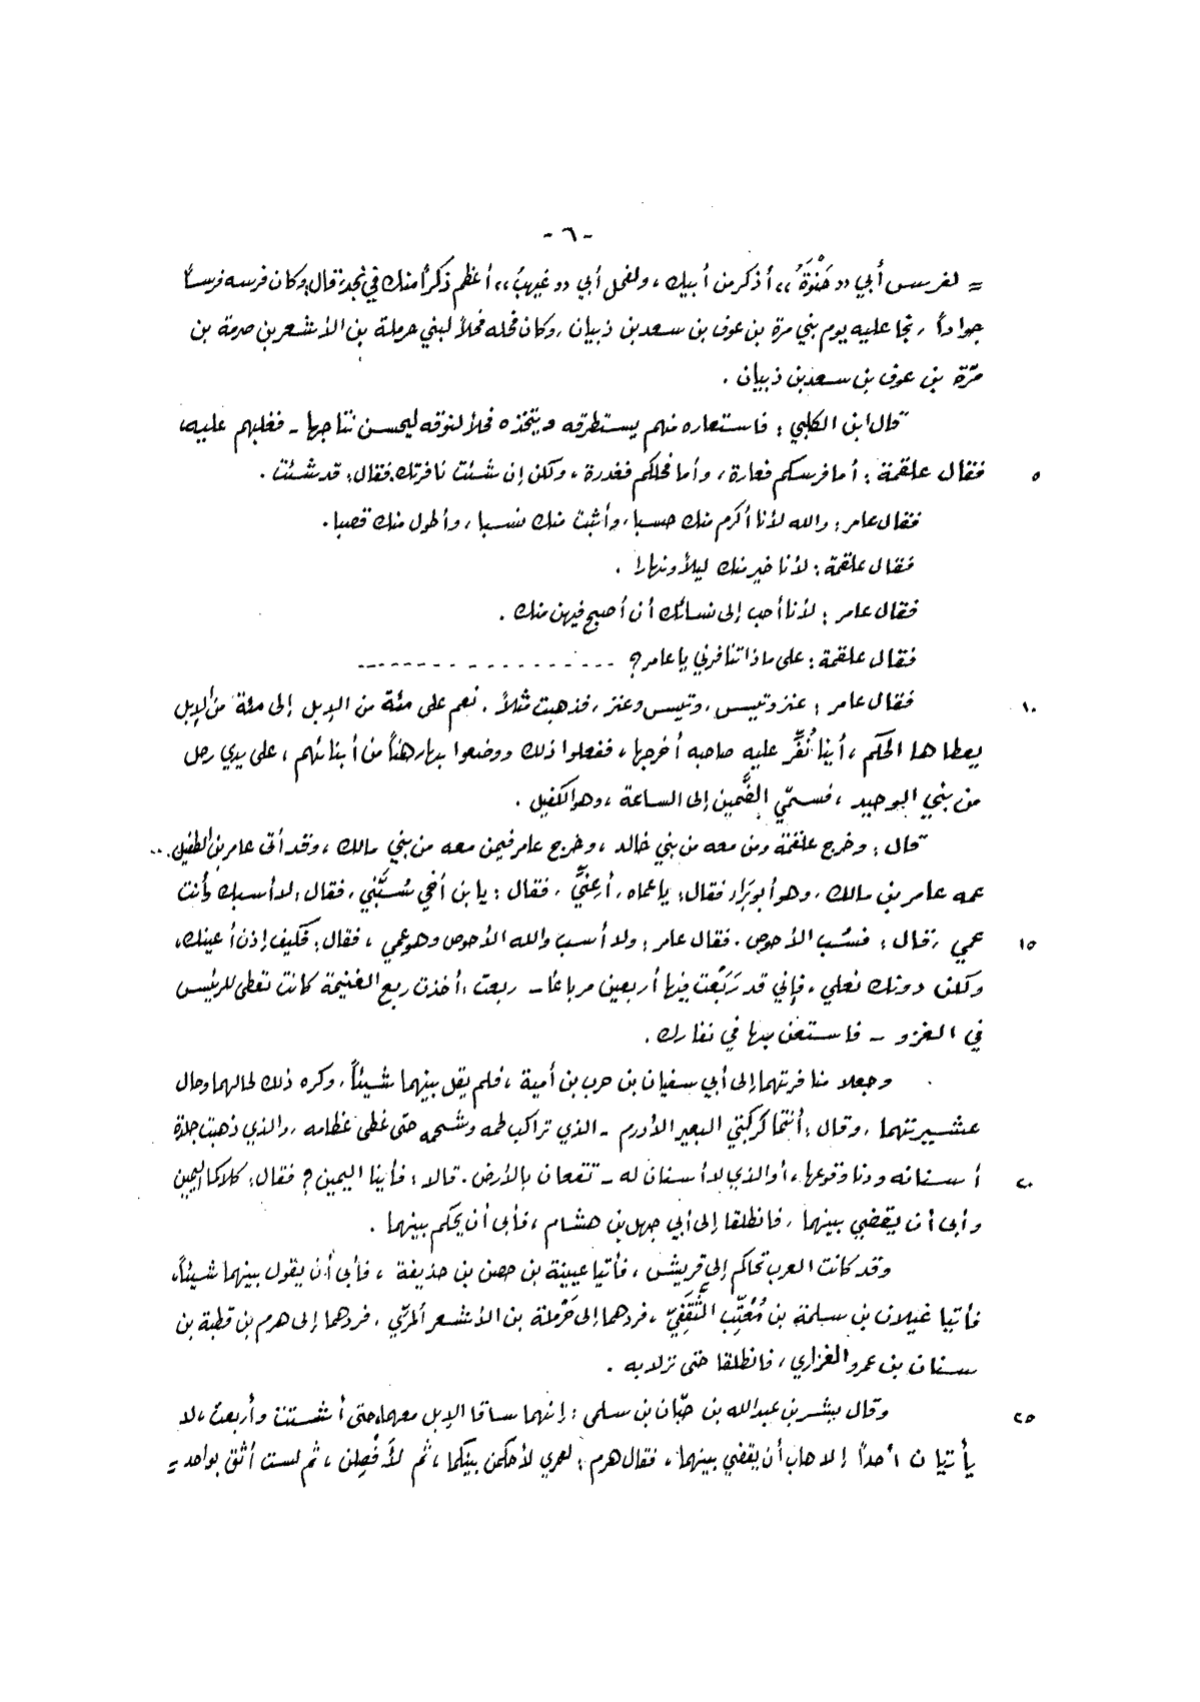 - ٦ -
= لفرس أبي «حَنْوَةُ» أذكر من أبيك، ولفحل أبي «غيهبُ» أعظم ذكراً منك في نجد، قال: وكان فرسه فرساً
جواداً، نجا عليه يوم بني مرة بن عوف بن سعد بن ذبيان، وكان فحله فحلاً لبني حرملة بن الأشعر بن صرمة بن
مرّة بن عوف بن سعد بن ذبيان.
قال ابن الكلبي: فاستعاره منهم يستطرقه ويتخذه فحلاً لنوقه ليحسن نتاجها - فغلبهم عليه،
٥ فقال علقمة: أما فرسكم فعارة، وأما فحلكم فغدرة، ولكن إن شئت نافرتك، فقال: قد شئت.
فقال عامر: والله لأنا أكرم منك حسباً، وأثبت منك نسباً، وأطول منك قصباً.
فقال علقمة: لأنا خير منك ليلاً ونهاراً.
فقال عامر: لأنا أحب إلى نسائك أن أصبح فيهن منك.
فقال علقمة: على ماذا تنافرني يا عامر؟ ------------------
١٠ فقال عامر: عنز وتيس، وتيس وعنز، فذهبت مثلاً. نعم على مئة من الإبل إلى مئة من الإبل
يعطاها الحكم، أينا نُفِّر عليه صاحبه أخرجها، ففعلوا ذلك ووضعوا بها رهناً من أبنائهم، على يدي رجل
من بني الوحيد، فسمّي الضَّمين إلى الساعة، وهو الكفيل.
قال: وخرج علقمة ومن معه من بني خالد، وخرج عامر فيمن معه من بني مالك، وقد أتى عامر بن الطفيل..
عمه عامر بن مالك، وهو أبو بَراء، فقال: يا عماه، أَعِنّي، فقال: يا بن أخي سُبَّني، فقال: لا أسبك وأنت
١٥ عمي، قال: فسُب الأحوص. فقال عامر: ولا أسب والله الأحوص وهو عمي، فقال: فكيف إذن أعينك،
ولكن دونك نعلي، فإني قد رَبَعْتُ فيها أربعين مرباعًا - ربعت: أخذت ربع الغنيمة كانت تعطى للرئيس
في الغزو - فاستعن بها في نفارك.
وجعلا منافرتهما إلى أبي سفيان بن حرب بن أمية، فلم يقل بينهما شيئاً، وكره ذلك لحالهما وحال
عشيرتهما، وقال: أنتما كركبتي البعير الأدرم - الذي تراكب لحمه وشحمه حتى غطى عظامه، والذي ذهبت جلدة
٢٠ أسنانه ودنا وقوعها، أو الذي لا أسنان له - تقعان بالأرض. قالا: فأينا اليمين؟ فقال: كلاكما اليمين
وأبى أن يقضي بينهما، فانطلقا إلى أبي جهل بن هشام، فأبى أن يحكم بينهما.
وقد كانت العرب تحاكم إلى قريش، فأتيا عيينة بن حصن بن حذيفة، فأبى أن يقول بينهما شيئاً،
فأتيا غيلان بن سلمة بن مُعَتِّب الثَّقَفِيّ، فردهما إلى حَرْملة بن الأشعر المرّي، فردهما إلى هرم بن قطبة بن
سنان بن عمرو الفزاري، فانطلقا حتى نزلا به.
٢٥ وقال بشر بن عبد الله بن حبّان بن سلمى: إنهما ساقا الإبل معهما، حتى أشتت وأربعت، لا
يأتيان أحداً إلا هاب أن يقضي بينهما، فقال هرم: لعمري لأحكمن بينكما، ثم لَأَفْصِلن، ثم لست أثق بواحد =